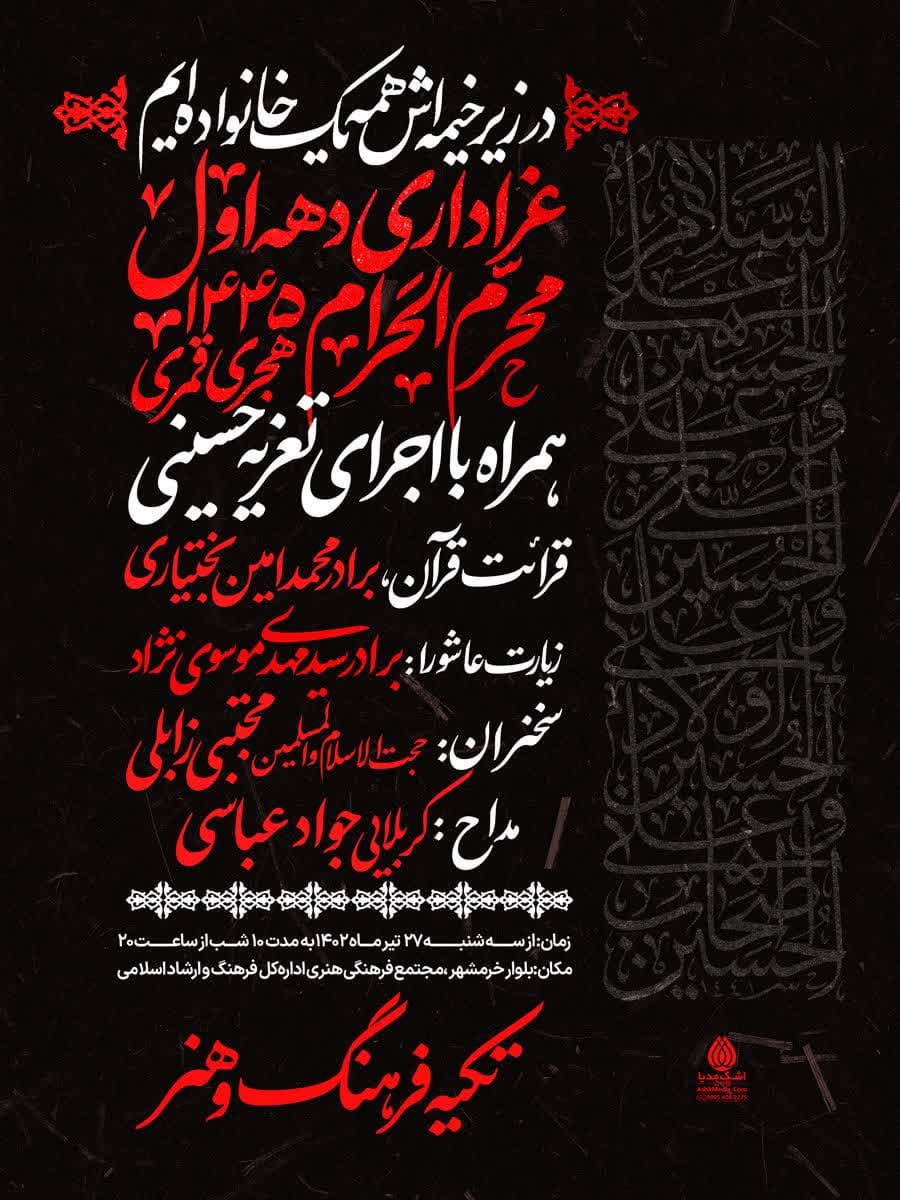 در زیر خیمه اش همه یک خانواده ایم
عزاداری دهه اول
محرّم الحرام ۱۴۴۵
هجری قمری
همراه با اجرای تعزیه حسینی
قرائت قرآن، برادر محمد امین بختیاری
زیارت عاشورا: برادر سید مهدی موسوی نژاد
سخنران: حجت الاسلام والمسلمین مجتبی زابلی
مداح: کربلایی جواد عباسی
زمان: از سه شنبه ۲۷ تیر ماه ۱۴۰۲ به مدت ۱۰ شب از ساعت ۲۰
مکان: بلوار خرمشهر ،مجتمع فرهنگی هنری اداره کل فرهنگ و ارشاد اسلامی
تکیه فرهنگ و هنر
السَّلام
علی
الحسین
وعلی
علیّ بن
الحسین
وعلی
اولاد
الحسین
وعلی
اصحاب
الحسین
اشک مدیا
AshkMedia.Com